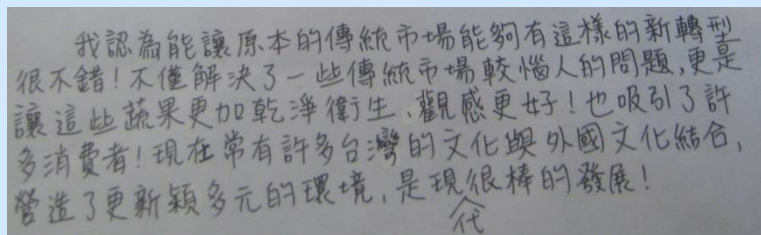 我認為能讓原本的傳統市場能夠有這樣的新轉型
很不錯！不僅解決了一些傳統市場較惱人的問題，更是
讓這些蔬果更加乾淨衛生、觀感更好！也吸引了許
多消費者！現在常有許多台灣的文化與外國文化結合，
營造了更新穎多元的環境，是現代很棒的發展！